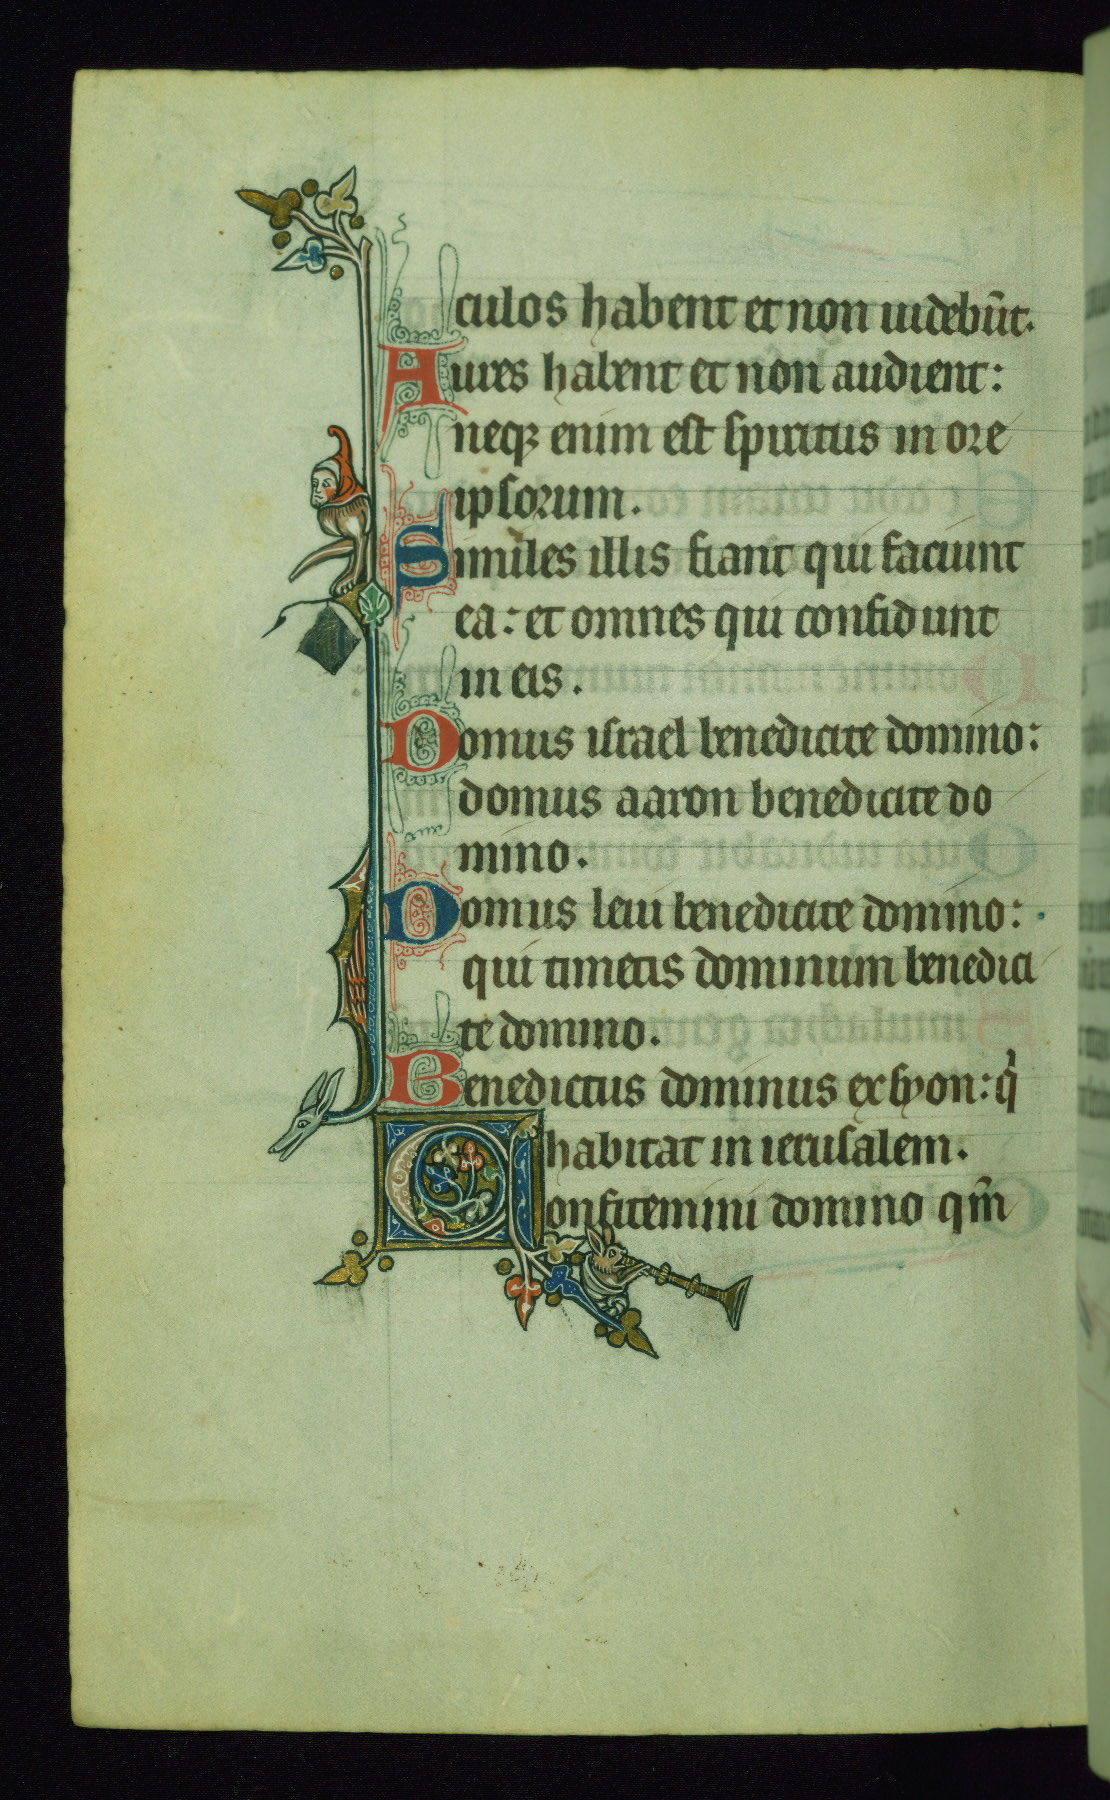 culos habent et non uidebūt.
Aures habent et non audient:
neqꝫ enim est spiritus in ore
ipsorum.
Similes illis fiant qui faciunt
ea: et omnes qui confidunt
in eis.
Domus israel benedicite domino:
domus aaron benedicite do
mino.
Domus leui benedicite domino:
qui timetis dominum benedici
te domino.
Benedictus dominus ex syon: qͥ
habitat in ierusalem.
Confitemini domino qm̄